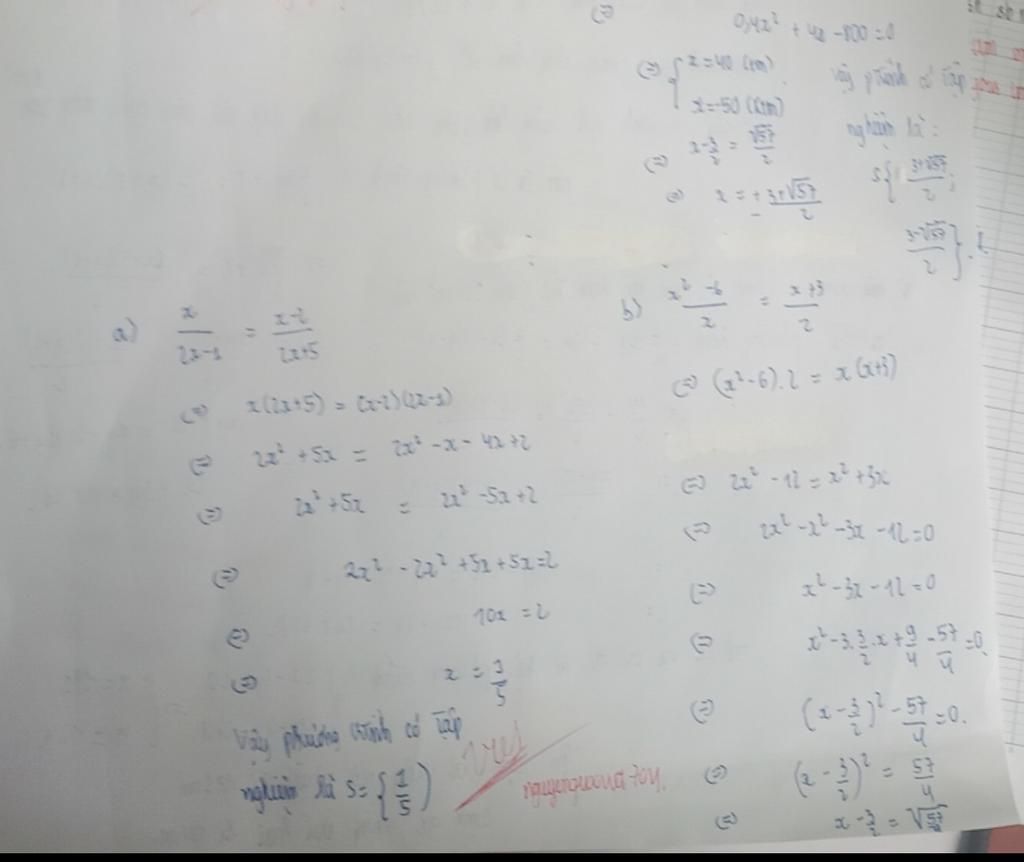 (=) 0,4x² + 4x - 800 = 0
(=) { x = 40 (km)
x = -50 (km)
Vậy ptrình có tập
nghiệm là:
(=) x - 3/2 = √57/2
(=) x = ± 3+√57/2
S{ 3+√57/2 ;
3-√57/2 }.
a) x/2x-1 = x-2/2x+5
(=) x(2x+5) = (x-2)(2x-1)
(=) 2x² + 5x = 2x² - x - 4x + 2
(=) 2x² + 5x = 2x² - 5x + 2
(=) 2x² - 2x² + 5x + 5x = 2
(=) 10x = 2
(=) x = 1/5
Vậy phương trình có tập
nghiệm là S = { 1/5 )
b) x² - 6/x = x+3/2
(=) (x² - 6).2 = x(x+3)
(=) 2x² - 12 = x² + 3x
(=) 2x² - x² - 3x - 12 = 0
(=) x² - 3x - 12 = 0
(=) x² - 3.3/2.x + 9/4 - 57/4 = 0.
(=) (x - 3/2)² - 57/4 = 0.
(=) (x - 3/2)² = 57/4
(=) x - 3/2 = √57/4